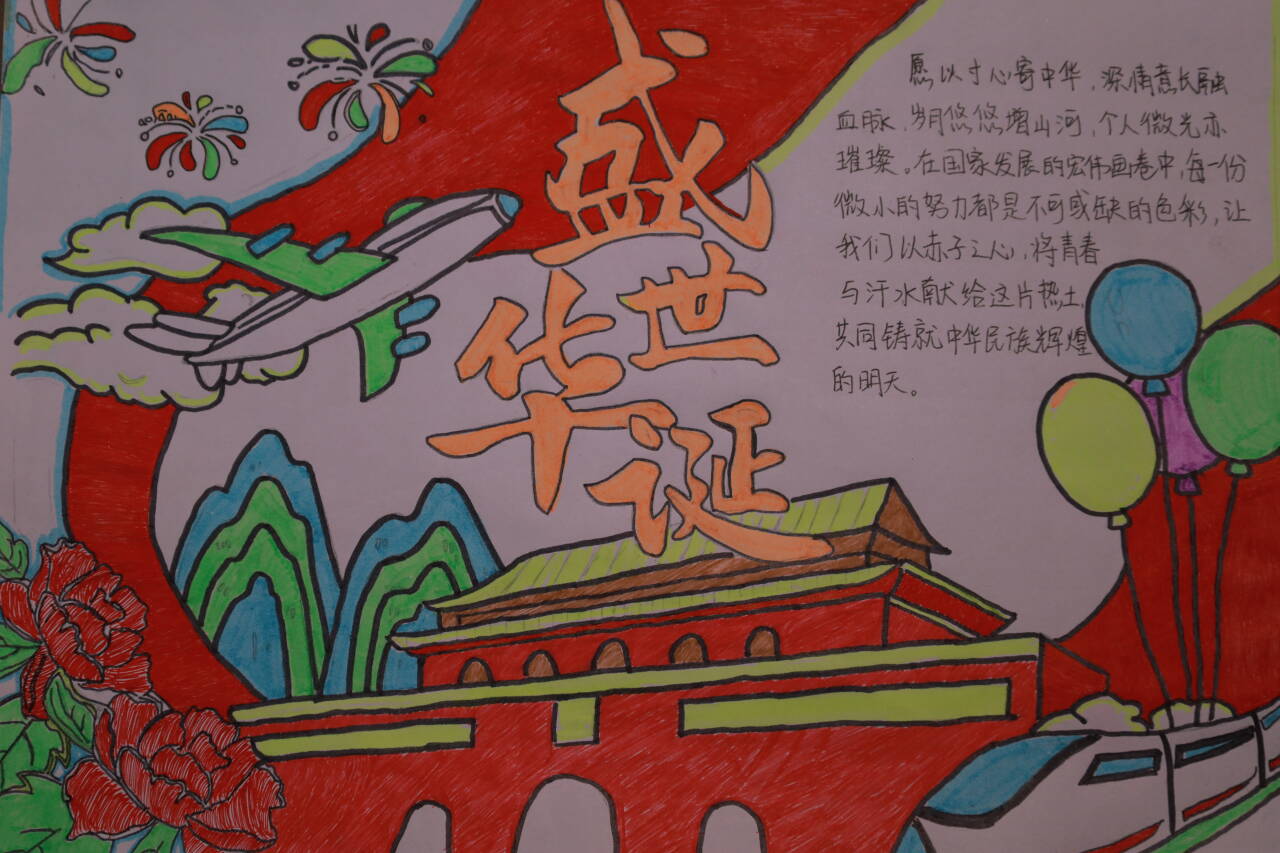 盛
世
华
诞
愿以寸心寄中华，深情意长融
血脉，岁月悠悠增山河，个人微光亦
璀璨。在国家发展的宏伟画卷中，每一份
微小的努力都是不可或缺的色彩，让
我们以赤子之心，将青春
与汗水献给这片热土，
共同铸就中华民族辉煌
的明天。